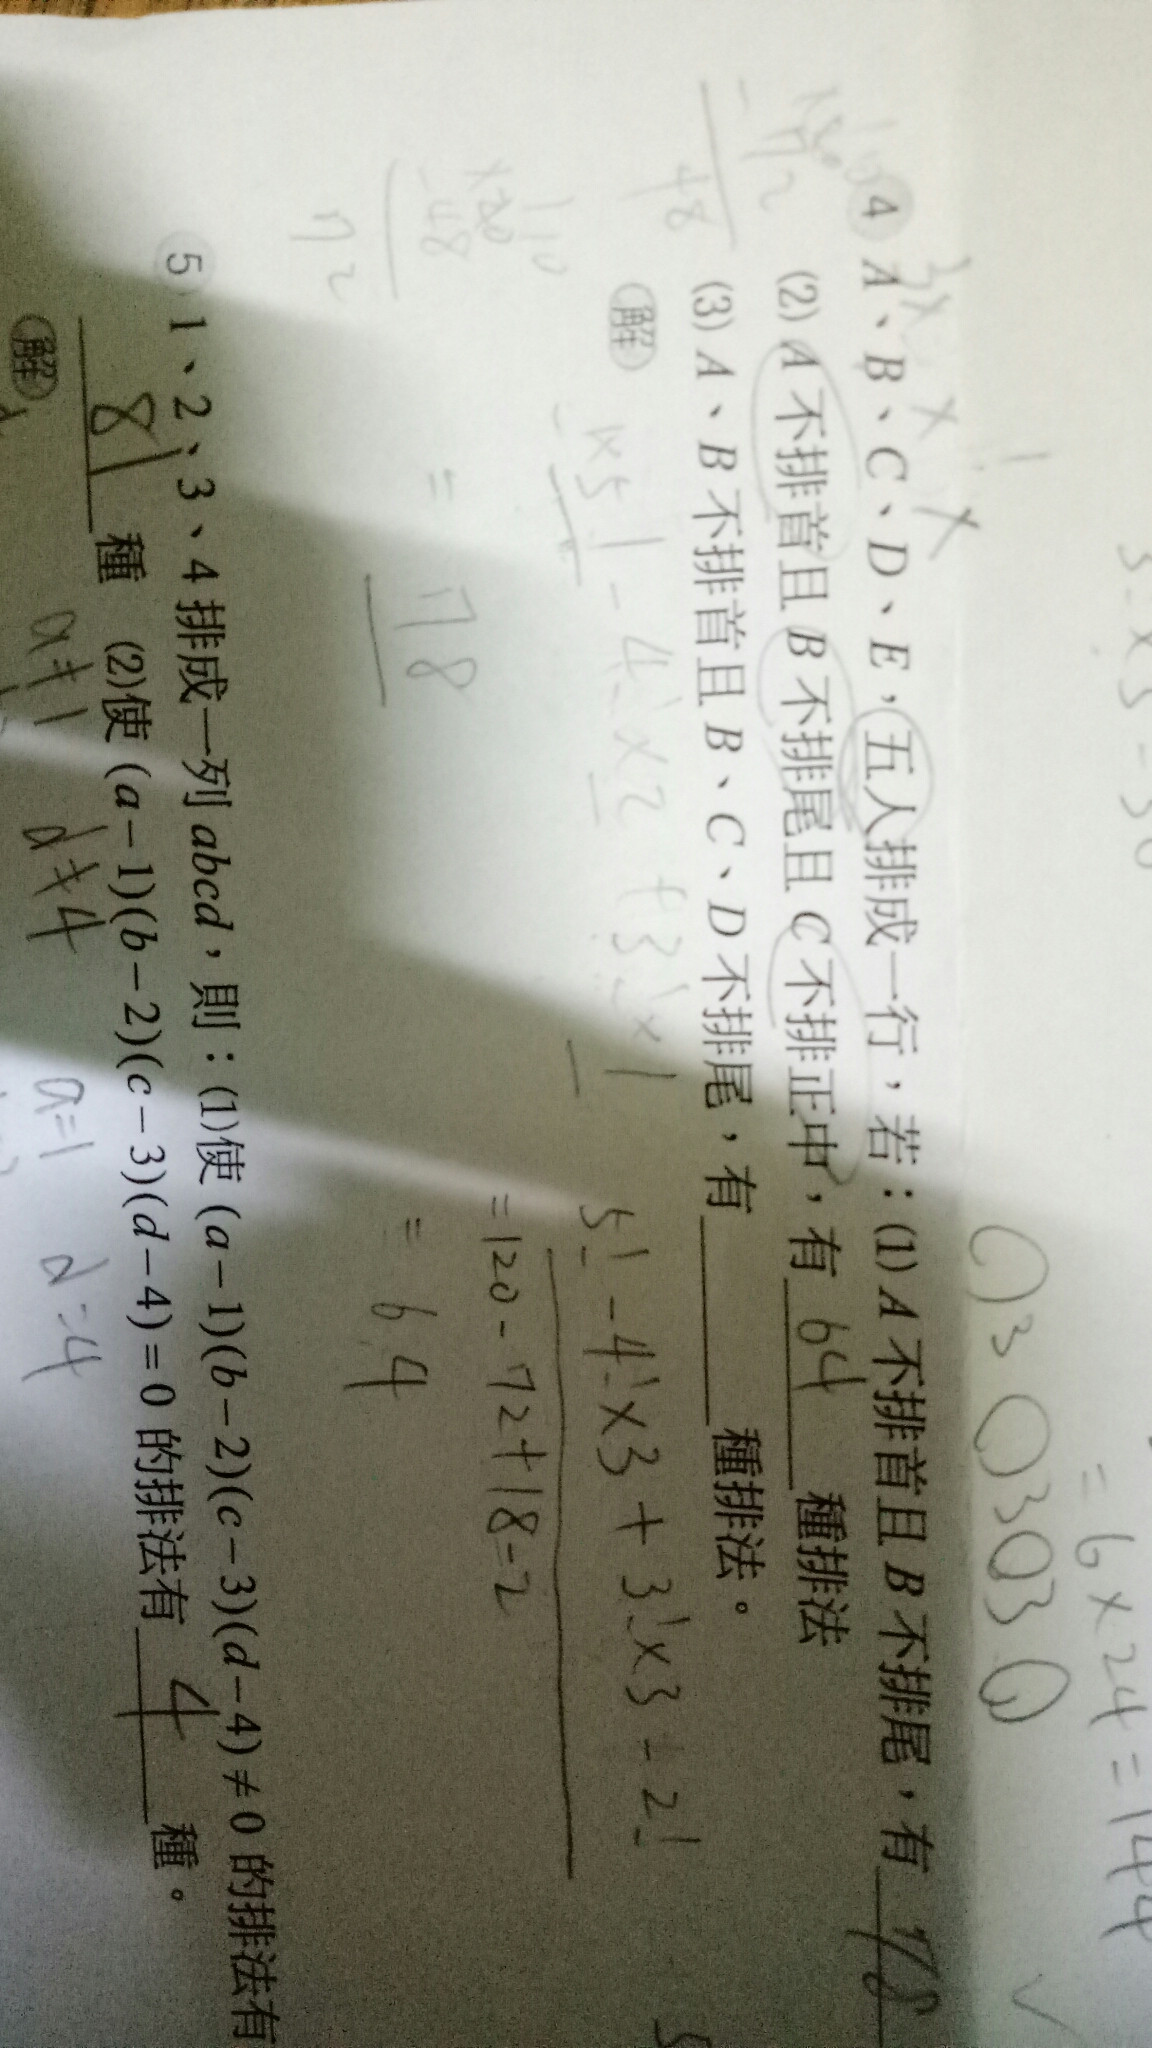 = 6 × 24 = 144
3 0 3 0 3 0
④ A、B、C、D、E,五人排成一行,若:(1) A 不排首且 B 不排尾,有 78
(2) A 不排首且 B 不排尾且 C 不排正中,有 64 種排法
(3) A、B 不排首且 B、C、D 不排尾,有______種排法。
解
5! - 4! × 2 + 3! × 1
= 78
5! - 4! × 3 + 3! × 3 - 2!
= 120 - 72 + 18 - 2
= 64
120
- 48
72
- 72
48
⑤ 1、2、3、4 排成一列 abcd,則:(1)使 (a-1)(b-2)(c-3)(d-4) ≠ 0 的排法有
8 種 (2)使 (a-1)(b-2)(c-3)(d-4) = 0 的排法有 4 種。
解
a≠1 d≠4 a=1 d=4